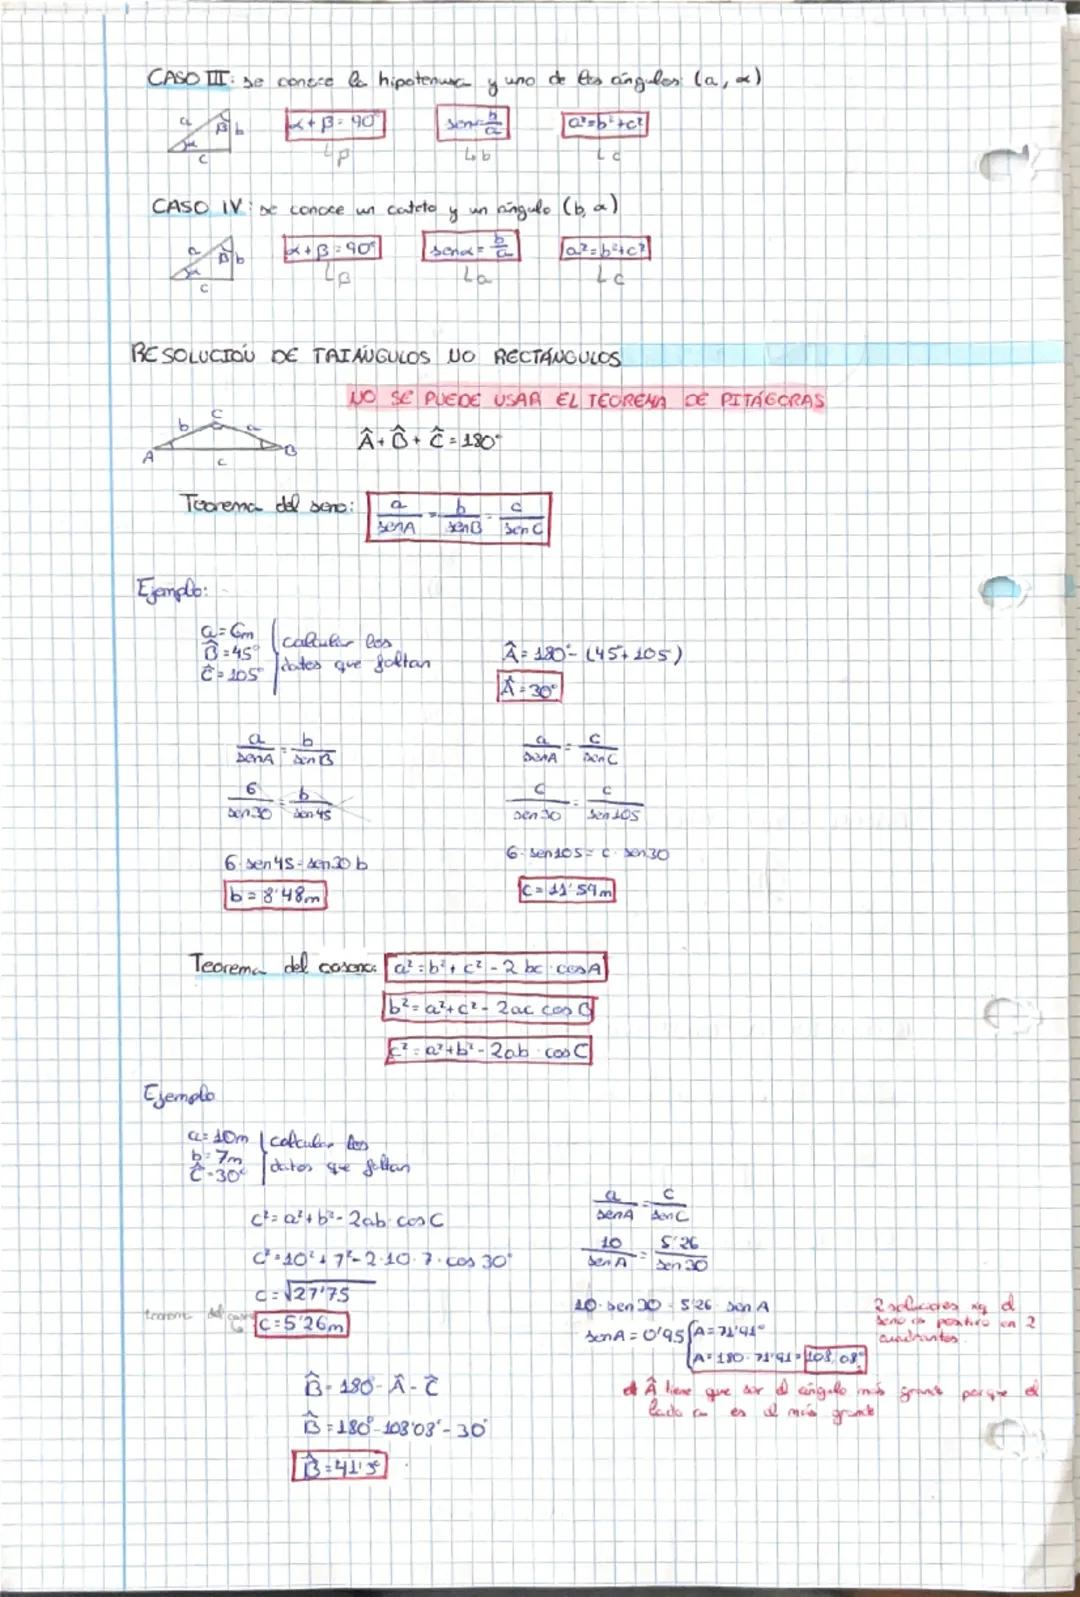 CASO III: se conoce la hipotenusa y uno de los ángulos (a, α)
a β b α c
α + β = 90°
sen = b/a
a² = b² + c²
↳ β
↳ b
↳ c
CASO IV: se conoce un cateto y un ángulo (b, α)
a β b α c
α + β = 90°
senα = b/a
a² = b² + c²
↳ β
↳ a
↳ c
RESOLUCIÓN DE TRIÁNGULOS NO RECTÁNGULOS
NO SE PUEDE USAR EL TEOREMA DE PITÁGORAS
A b C a B c
Â + B̂ + Ĉ = 180°
Teorema del seno: a/senA = b/senB = c/senC
Ejemplo:
a = 6m
B̂ = 45°
Ĉ = 105°
calcular los
datos que faltan
Â = 180° - (45 + 105)
Â = 30°
a/senA = b/senB
6/sen30 = b/sen45
6 · sen45 = sen30 b
b = 8'48m
a/senA = c/senC
6/sen30 = c/sen105
6 · sen105 = c · sen30
c = 11'59m
Teorema del coseno: a² = b² + c² - 2bc · cosA
b² = a² + c² - 2ac cos
c² = a² + b² - 2ab · cosC
Ejemplo
a = 10m
b = 7m
Ĉ = 30°
calcular los
datos que faltan
c² = a² + b² - 2ab · cosC
c² = 10² + 7² - 2·10·7·cos 30°
c = √27'75
teorema del
c = 5'26m
B̂ = 180 - Â - Ĉ
B̂ = 180° - 108'08° - 30°
B̂ = 41'9°
a/senA = c/senC
10/senA = 5'26/sen30
10 · sen30 = 5'26 · senA
senA = 0'95
A = 71'91°
A = 180 - 71'91 = 108,08°
2 soluciones xq el
seno es positivo en 2
cuadrantes.
el Â tiene que ser el ángulo más grande porque el
lado a es el más grande